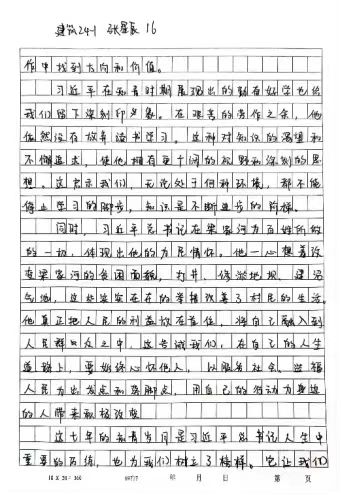 建筑24-1 张星辰 16
作中找到方向和价值。
习近平在知青时期展现出的勤奋好学也给
我们留下深刻印象。在艰苦的劳作之余，他
依然没有放弃读书学习。这种对知识的渴望和
不懈追求，使他拥有更广阔的视野和深刻的思
想。这启示我们，无论处于何种环境，都不能
停止学习的脚步，知识是不断进步的阶梯。
同时，习近平总书记在梁家河为百姓所做
的一切，体现出他的为民情怀。他一心想着改
变梁家河的贫困面貌，打井、修淤地坝、建沼
气池，这些实实在在的举措改善了村民的生活。
他真正把人民的利益放在首位，将自己融入到
人民群众之中，这告诫我们，在自己的人生
道路上，要始终心怀他人，以服务社会、造福
人民为出发点和落脚点，用自己的行动为身边
的人带来积极改变
这七年的知青岁月是习近平总书记人生中
重要的历练，也为我们树立了榜样。它让我们
18 X 20 = 360 年 月 日 第 页